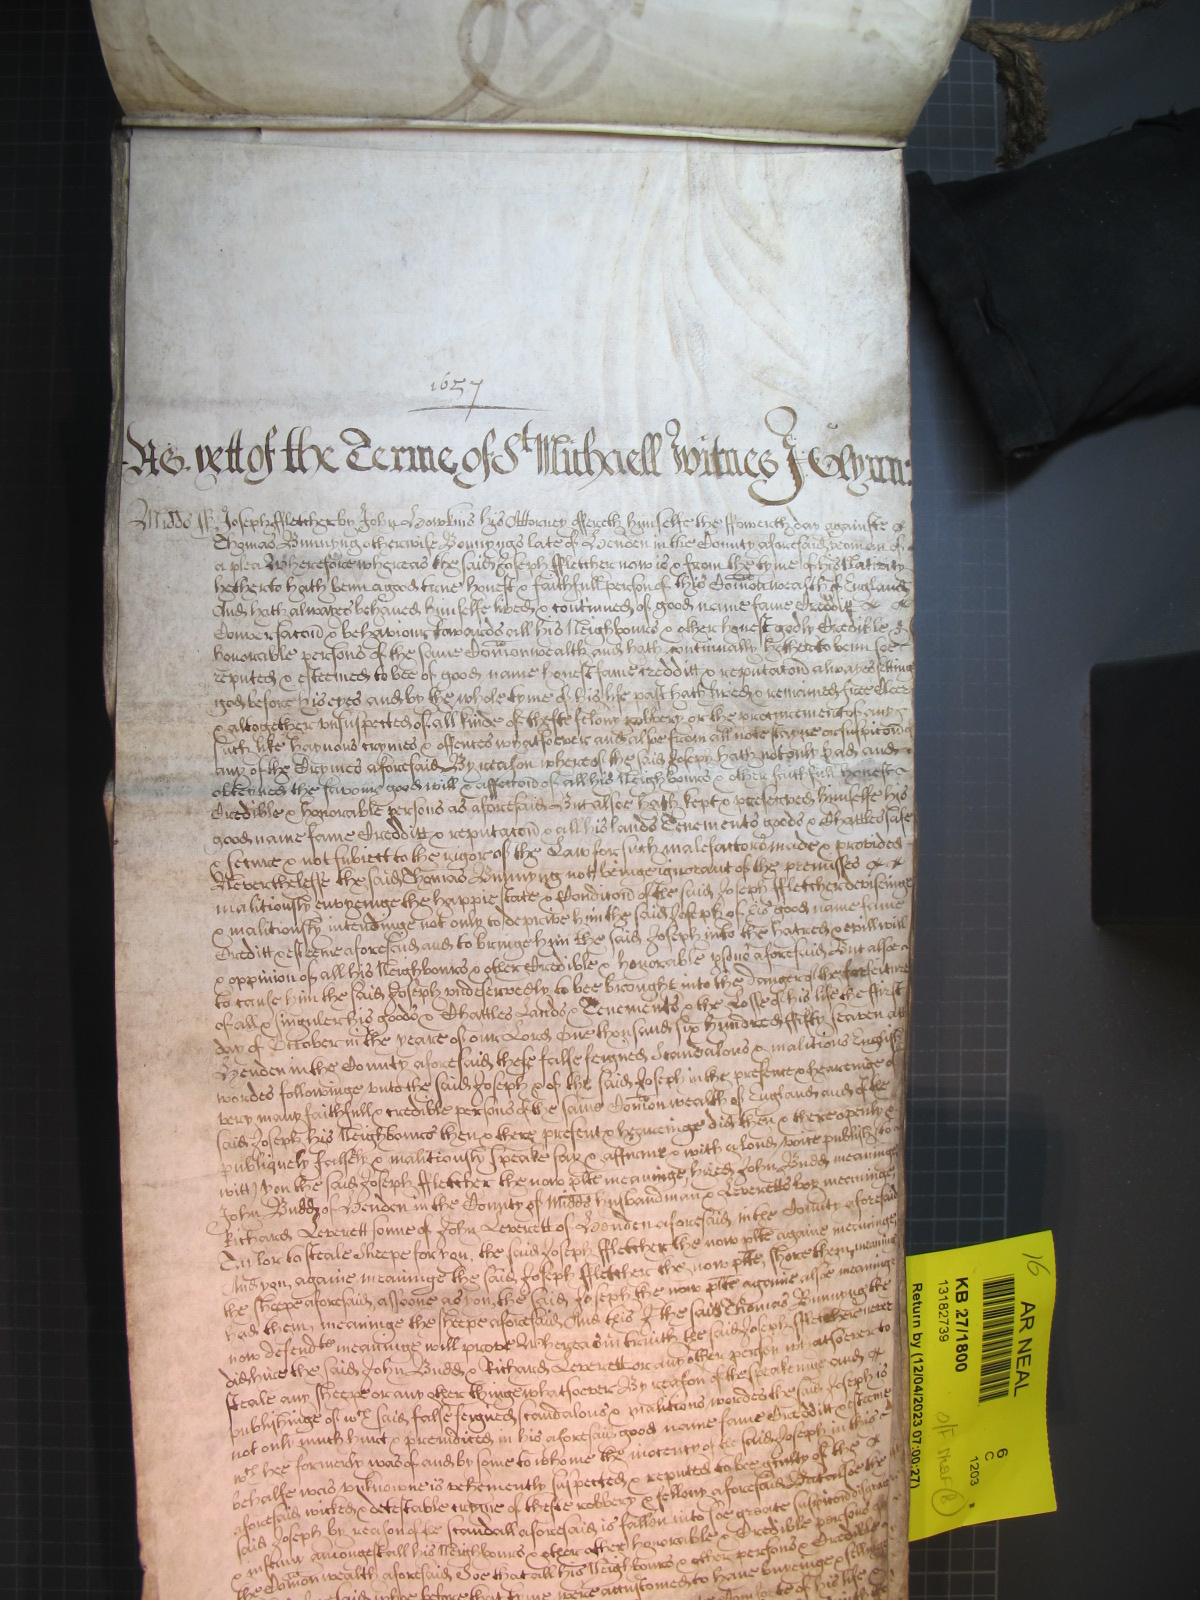 1657
As yett of the Terme of St Michaell Witnes J Glynn:
Midds ss Joseph ffletcher by John Hawkins his Attorney offereth himselfe the ffowerth day against
Thomas Bunnyng otherwise Bonnyngs late of Henden in the County aforesaid yeoman of
a plea Wherefore whereas the said Joseph ffletcher now is & from the tyme of his Nativity
hetherto hath benn a good true honest & faithfull person of this Comonwealth of England
And hath alwaies behaved himselfe lived & continued of good name fame Creditt
Conversacon & behaviour towards all his Neighbours & other honest godly Credible &
honorable persons of the same Comonwealth and hath continually hetherto benn soe
reputed & esteemed to bee of good name honest fame creditt & reputacon alwaies setting
god before his eyes and by the whole tyme of his life past hath lived & remained free cleer
& altogether unsuspected of all kinde of thefte felony robbery or the procurement of any
such like haynous crymes & offences whatsoever and alsoe from all note stayne or suspicon of
any of the Crymes aforesaid By reason whereof the said Joseph hath not only had and
obteyned the favour good will & affeccon of all his Neighbours & other faithfull honest
Credible & honorable persons as aforesaid But alsoe hath kept & preserved himselfe his
good name fame Credditt & reputacon & all his lands Tenements goods & Chattles safe
& secure & not subiect to the rigor of the Law for such malefactors made & provided
Neverthelesse the said Thomas Bunnyng not beinge ignorant of the premisses
malitiously envyenge the happie state & Condicon of the said Joseph ffletcher devisinge
& malitiously intendinge not only to deprave him the said Joseph of his good name fame
Creditt & esteeme aforesaid and to bringe him the said Joseph into the hatred & evill will
& oppinion of all his Neighbours & other Credible & honorable psons aforesaid But alsoe
to cause him the said Joseph undeservedly to bee brought into the danger of the forfeiture
of all & singuler his goods & Chattles Lands & Tenements & the Losse of his life the ffirst
day of October in the yeare of our Lord One thousand six hundred ffifty seaven att
Henden in the County aforesaid these false feigned Scandalous & malitious English
wordes followinge unto the said Joseph & of the said Joseph in the presence & heareinge of
very many faithfull & credible persons of the same Comonwealth of England and of the
said Joseph his Neighbours then & there present & heareinge did then & there openly
publiquely falsely & malitiously speake say & affirme & with a loud voice publish to
witt You the said Joseph ffletcher the now plte meaninge hired John Budd meaninge
John Budd of Henden in the County of Midds husbandman & Leveretts boy meaninge
Richard Leverett sonne of John Leverett of Henden aforesaid in the County aforesaid
to steale Sheepe for you, the said Joseph ffletcher the now plte againe meaninge
And you, againe meaninge the said Joseph ffletcher the now plte, shore them meaning
the sheepe aforesaid, assoone as you, the said Joseph the now plte againe alsoe meaninge
had them, meaninge the sheepe aforesaid, And this I the said Thomas Bunnyng the
now defendt meaninge will prove Whereas in truith the said Joseph ffletcher never
did hire the said John Budd & Richard Leverett or any other person whatsoever to
steale any sheepe or any other thinge whatsoever By reason of the speakeinge and
publishinge of wch said false feigned scandalous & malitious wordes the said Joseph is
not only much hurt & preiudiced in his aforesaid good name fame Credditt & esteeme
wch hee formerly was of and by some to whome the inocency of the said Joseph in this
behalfe was unknowne is vehemently suspected & reputed to bee guilty of the
aforesaid wicked & detestable cryme of thefte robbery & fellony aforesaid But alsoe the
said Joseph by reason of the scandall aforesaid is fallen into soe greate suspicon disgrace
& infamy amongest all his Neighbours & other honorable & Credible persons of
the Comonwealth aforesaid Soe that all his Neighbours & other persons & Credible
before that tyme were accustomed to have buyinge & sellinge
of his life
16
AR NEAL
KB 27/1800
13182739
Return by (12/04/2023 07:00:27)
6
C
1203